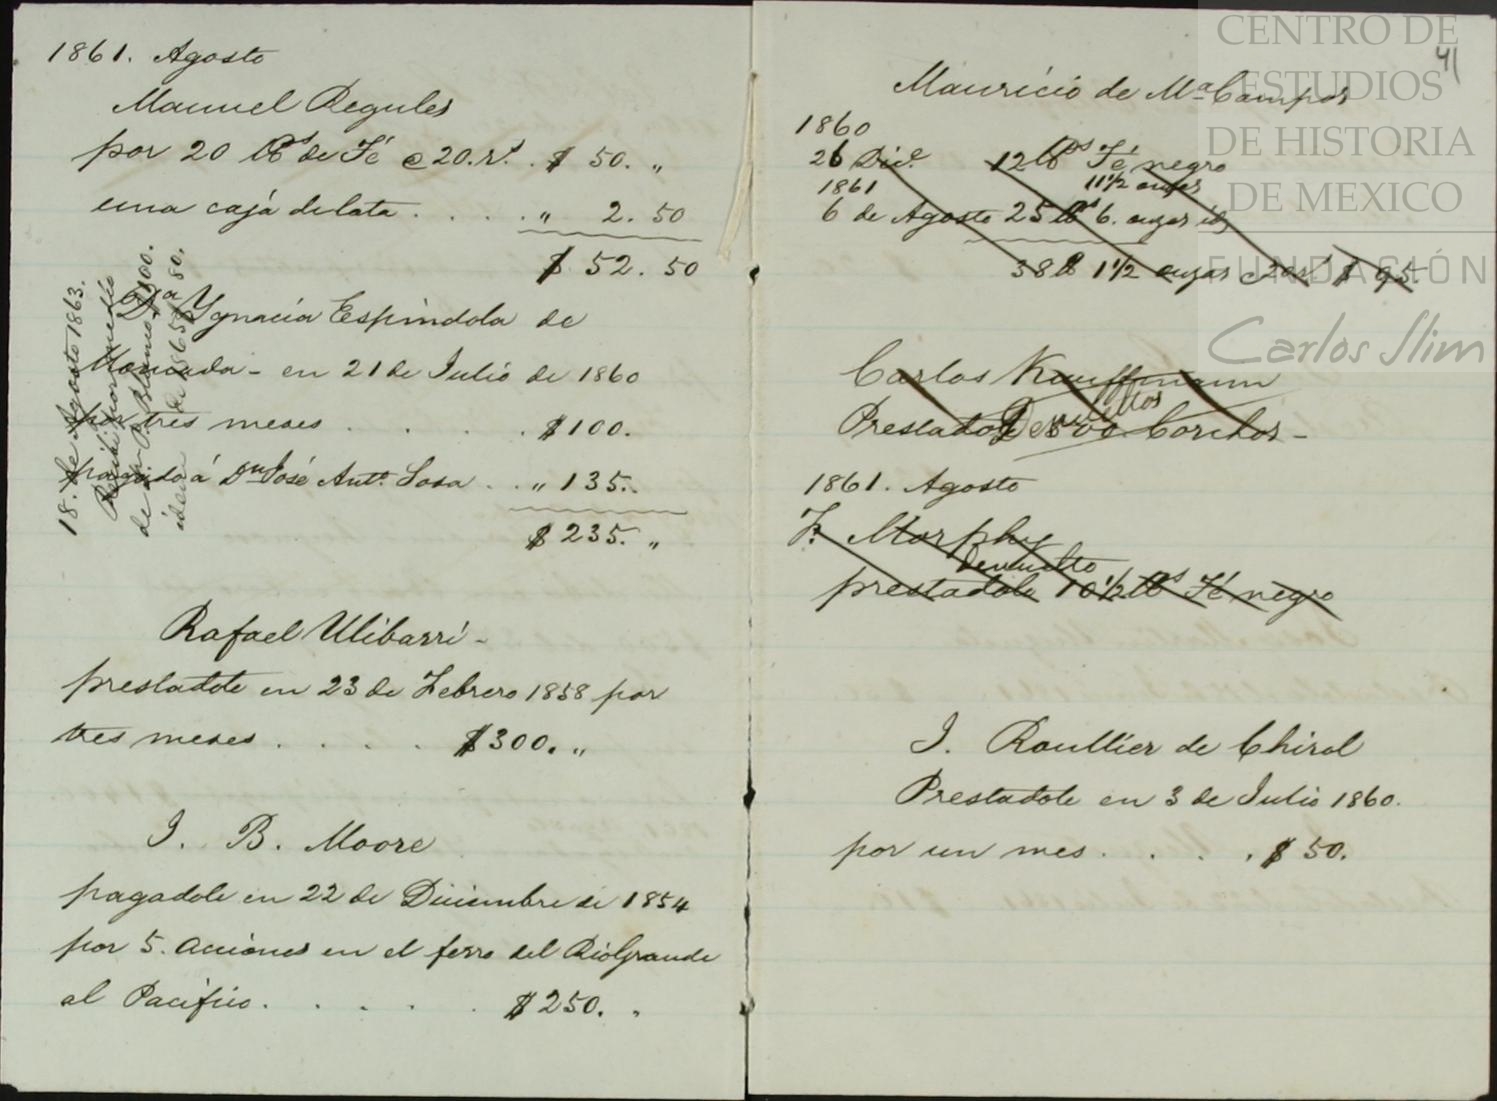 1861. Agosto
Manuel Regules
por 20 lbs de Té @ 20. rs. . $ 50. "
una caja de lata . . . . . " 2. 50
$ 52. 50
Da Ygnacia Espindola de
Moncada - en 21 de Julio de 1860
por tres meses . . . . . $100.
pagado á Dn José Anto. Sosa . . " 135..
$ 235. "
18. de Agosto 1863.
Recibi por medio
de
idem
Rafael Ulibarri -
prestadole en 23 de Febrero 1858 por
tres meses . . . . $300. "
J. B. Moore
pagadole en 22 de Diciembre de 1854
por 5. acciones en el ferro del Rio Grande
al Pacifico . . . . . $250. "
41
Mauricio de Ma Campos
1860
26 Dice. 12 lbs Té negro
11 1/2 onzas
1861
6 de Agosto 25 lbs 6. onzas id
38 lb 1 1/2 onzas @ 20 rs $ 95.
Carlos Kauffmann
Devueltos
Prestadole 500 Corchos -
1861. Agosto
F. Morphy
devuelto
prestadole 10 1/2 lbs Té negro
J. Roullier de Chirol
Prestadole en 3 de Julio 1860.
por un mes . . . . $ 50.
CENTRO DE
ESTUDIOS
DE HISTORIA
DE MEXICO
FUNDACIÓN
Carlos Slim